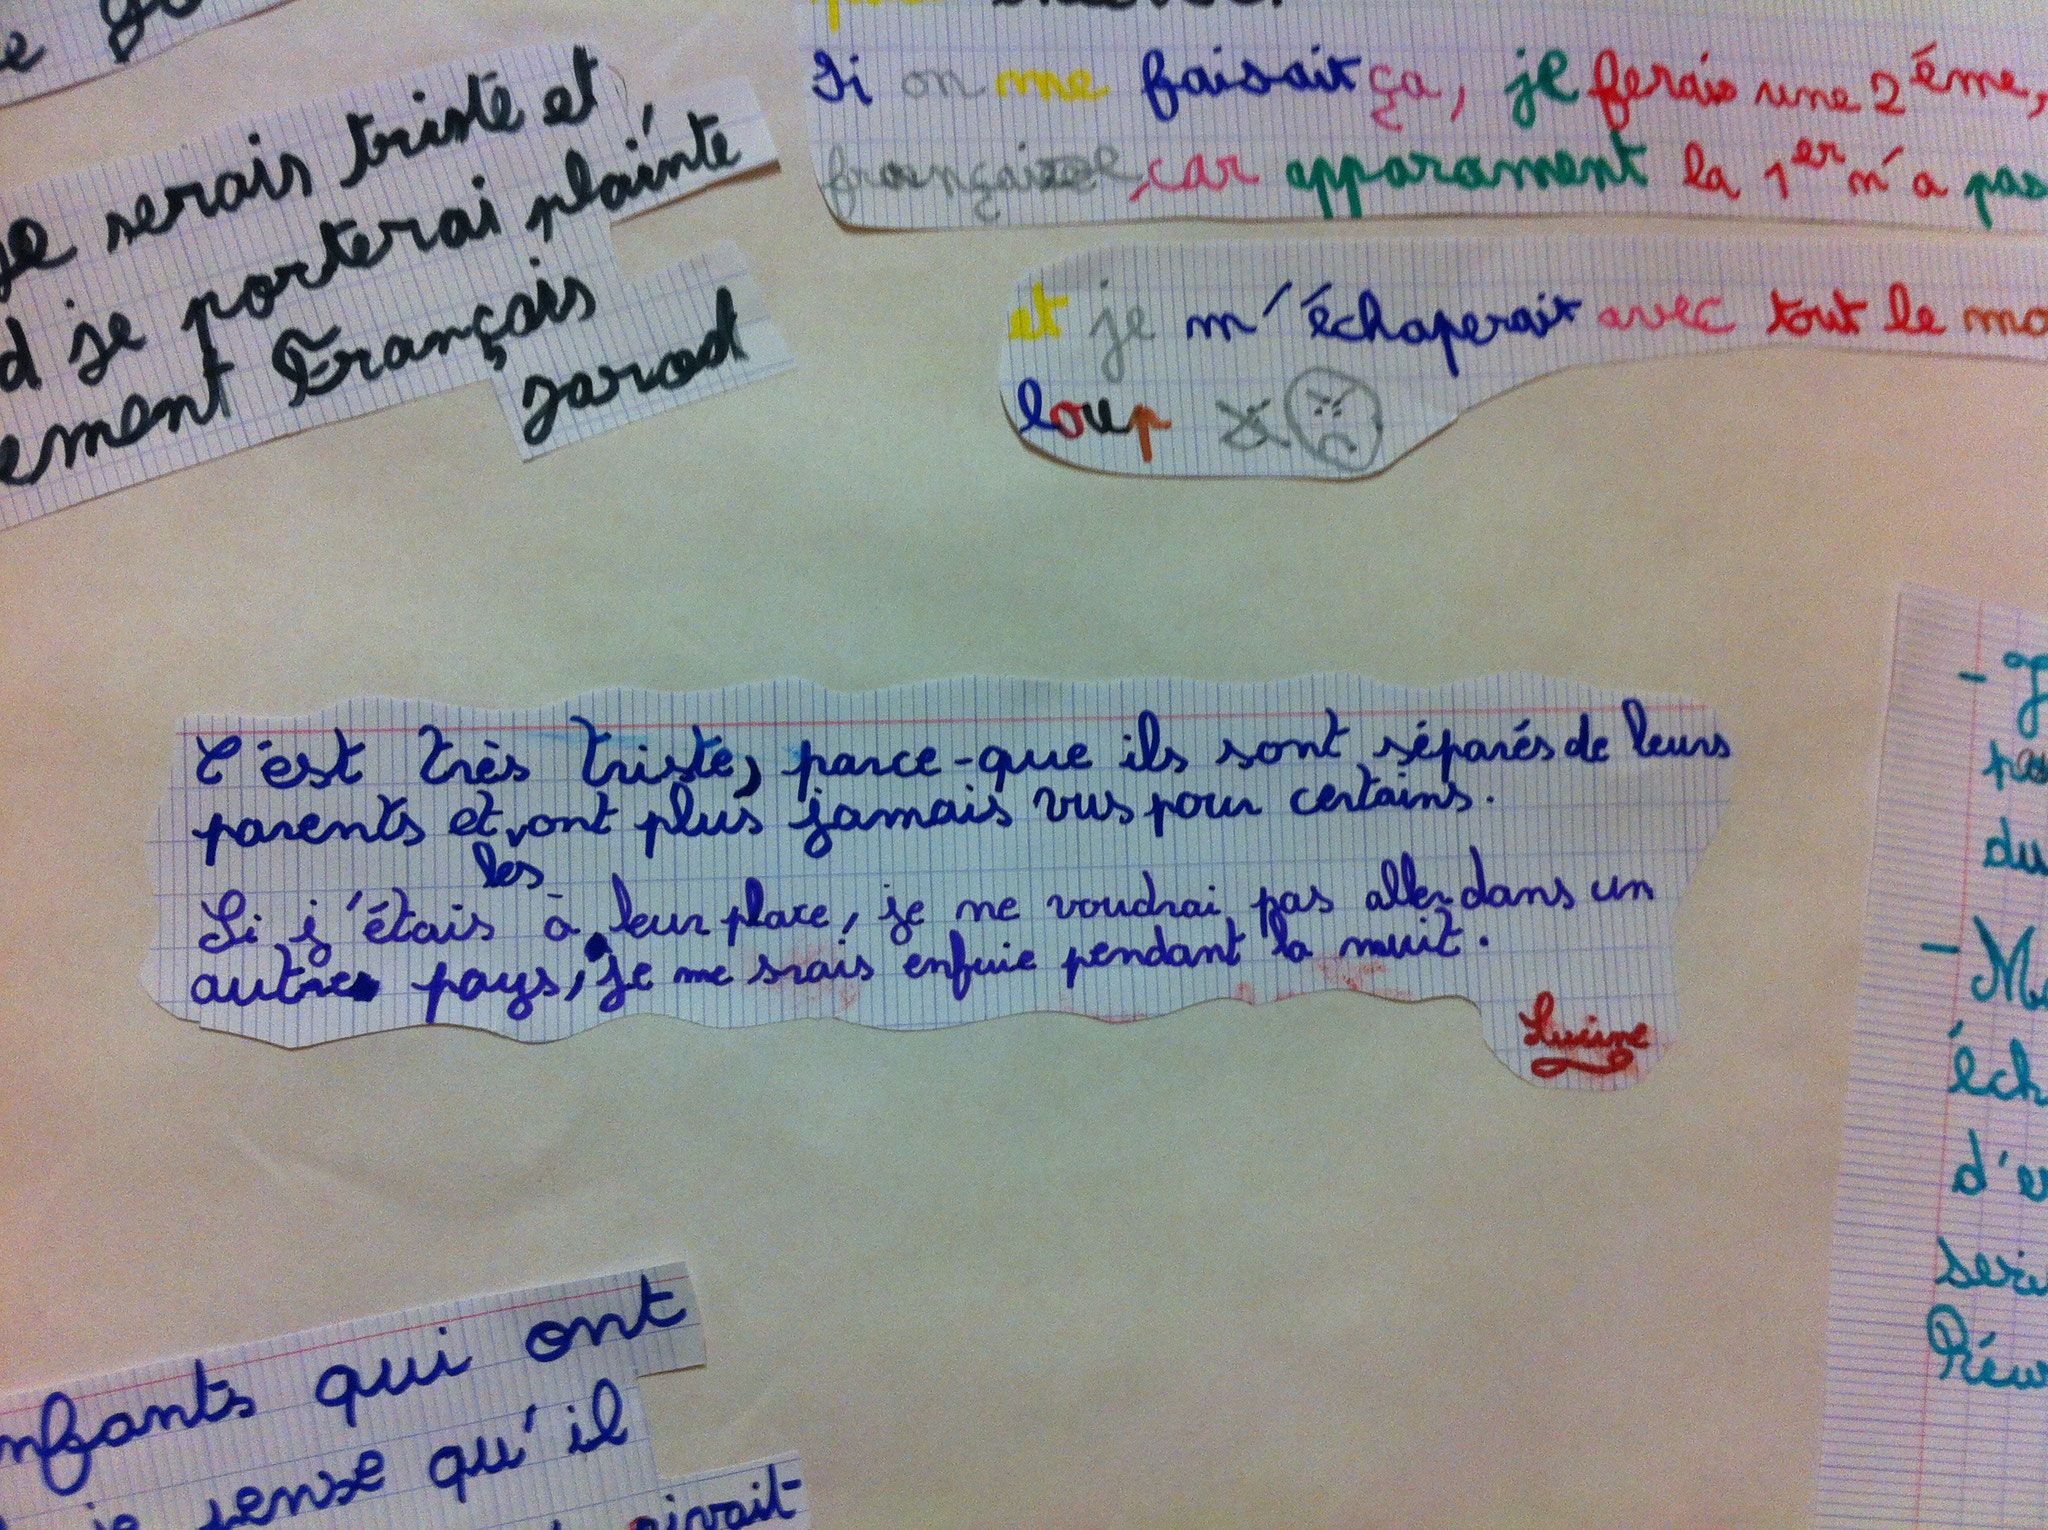 je serais triste et
d je porterai plainte
ement Français
Jarod
Si on me faisait ça, je ferais une 2ème,
française, car apparament la 1er m'a pas
et je m'échaperait avec tout le mo
loup
C'est très triste, parce-que ils sont séparés de leurs
parents et ont plus jamais vus pour certains.
les
Si j'étais à leur place, je ne voudrai pas aller dans un
autre pays, je me srais enfuie pendant la nuit.
Lucine
- J
pas
du
- Ma
éch
d'e
seri
Réu
nfants qui ont
je pense qu'il
rivait